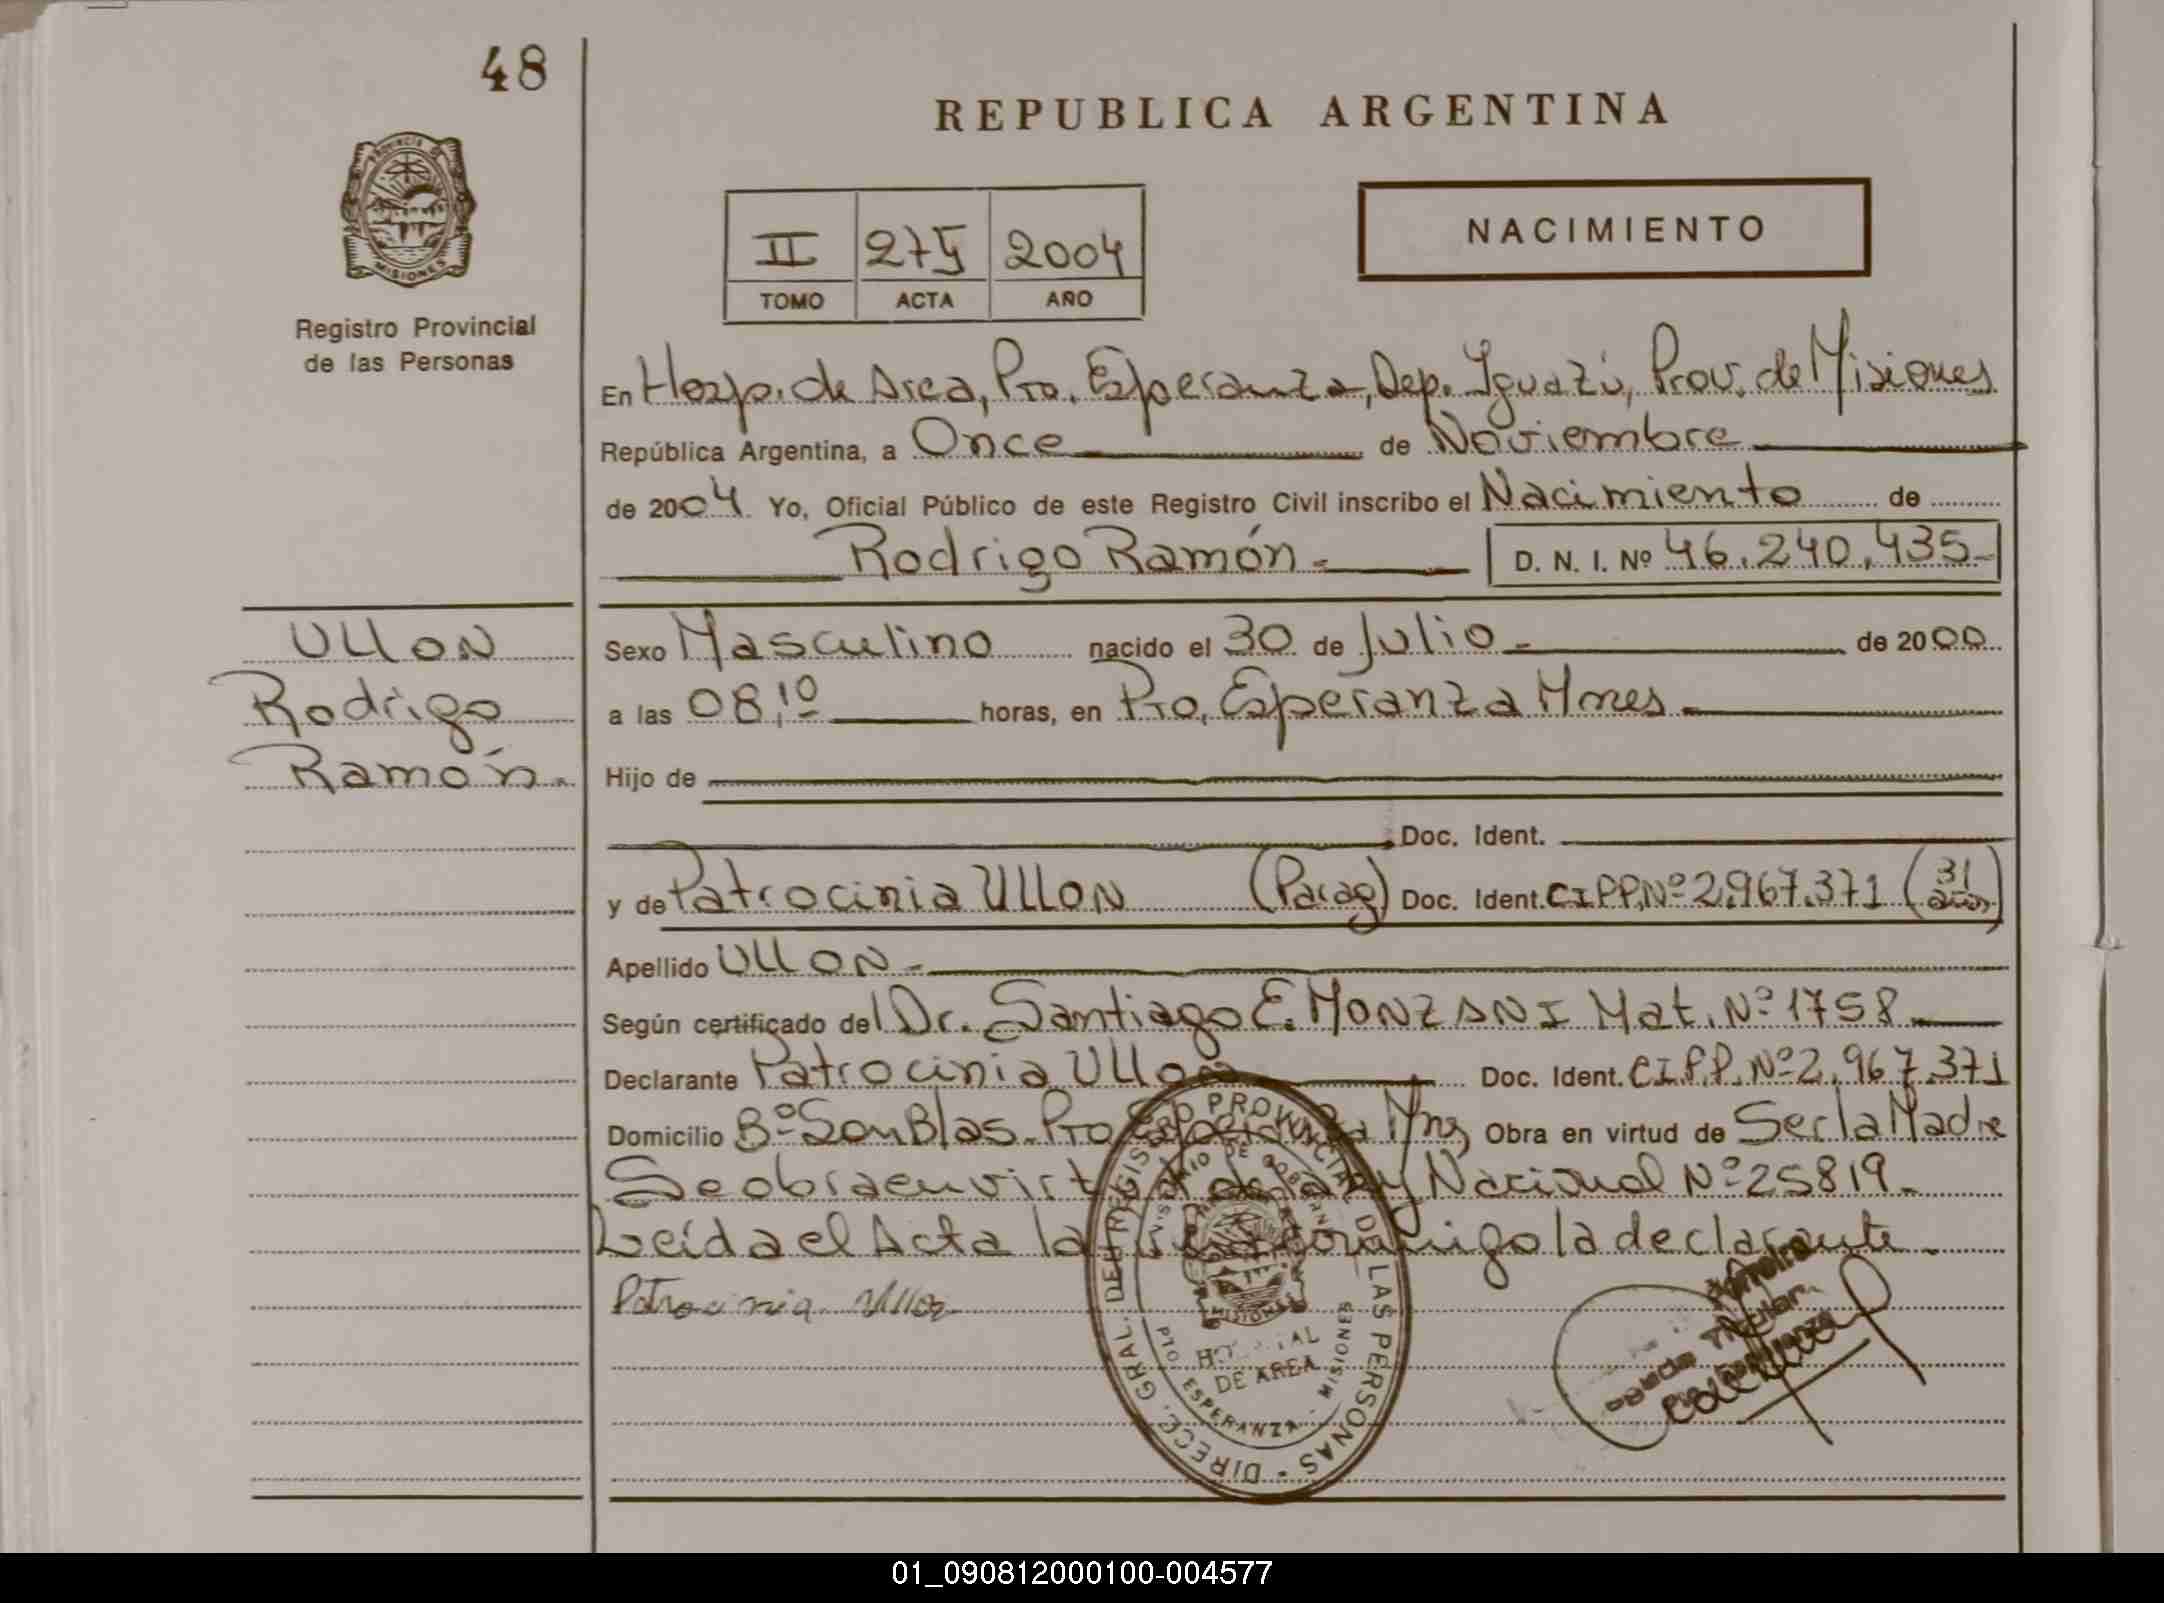 48
REPUBLICA ARGENTINA
PROVINCIA DE
MISIONES
Registro Provincial
de las Personas
NACIMIENTO
II 275 2004
TOMO ACTA AÑO
En Hosp. de Area, Pto. Esperanza, Dep. Iguazú, Prov. de Misiones
República Argentina, a Once de Noviembre
de 2004 Yo, Oficial Público de este Registro Civil inscribo el Nacimiento de
Rodrigo Ramón.- D. N. I. Nº 46.240.435-
ULLON
Rodrigo
Ramón.
Sexo Masculino nacido el 30 de Julio.- de 2000
a las 08,10 horas, en Pto. Esperanza Mnes.-
Hijo de
Doc. Ident.
y de Patrocinia ULLON (Parag) Doc. Ident. C.I.P.P. Nº 2.967.371 (31 años)
Apellido ULLON.-
Según certificado del Dr. Santiago E. MONZANI Mat. Nº 1758.-
Declarante Patrocinia Ullon Doc. Ident. C.I.P.P. Nº 2.967.371
Domicilio Bº San Blas. Pto Esperanza Mns, Obra en virtud de Ser la Madre
Se obra en virtud de la Ley Nacional Nº 25819.-
Leída el Acta la firma conmigo la declarante.-
Patrocinia Ullon
DIRECC. GRAL. DEL REGISTRO PROVINCIAL DE LAS PERSONAS -
MISIONES
HOSPITAL
DE AREA
PTO ESPERANZA - MISIONES
Titular
01_090812000100-004577